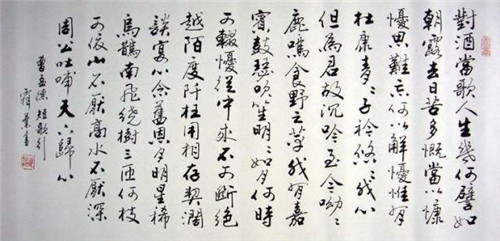 對酒當歌人生幾何譬如
朝露去日苦多慨當以慷
憂思難忘何以解憂惟有
杜康青々子衿悠々我心
但為君故沉吟至今呦々
鹿鳴食野之苹我有嘉
賓鼓瑟吹笙明々如月何時
可輟憂從中來不可斷絕
越陌度阡枉用相存契闊
談宴心念舊恩月明星稀
烏鵲南飛繞樹三匝何枝
可依山不厭高水不厭深
周公吐哺天下歸心
曹孟德短歌行
書